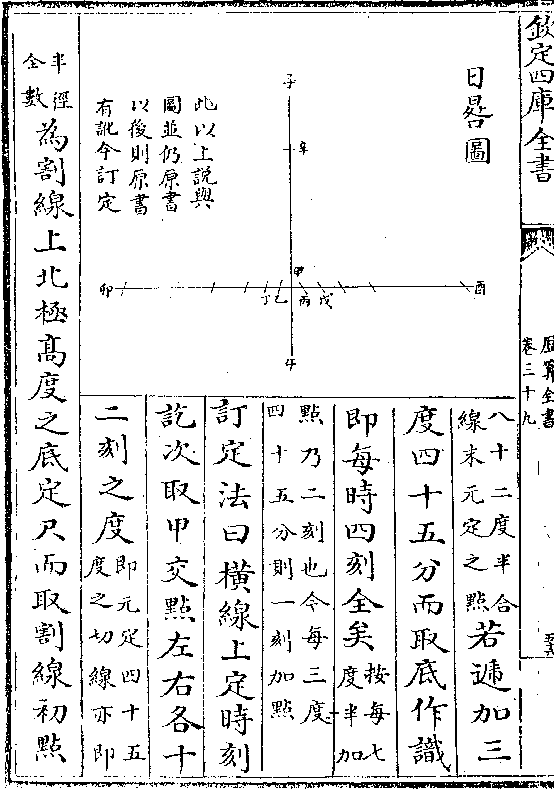 欽定四庫全書
厯算全書
卷三十九
日晷圖
子
甲
卯
丁
乙
丙
戊
酉
午
此以上説與
圖並仍原書
以後則原書
有訛今訂定
八十二度半合
線末元定之點
若遞加三
度四十五分而取底作識
即每時四刻全矣
按每七
度半加
點乃二刻也今每三度
四十五分則一刻加點
訂定法曰橫線上定時刻
訖次取甲交點左右各十
二刻之度
即元定四十五
度之切線亦即
半徑
全數
為割線上北極髙度之底定尺而取割線初點